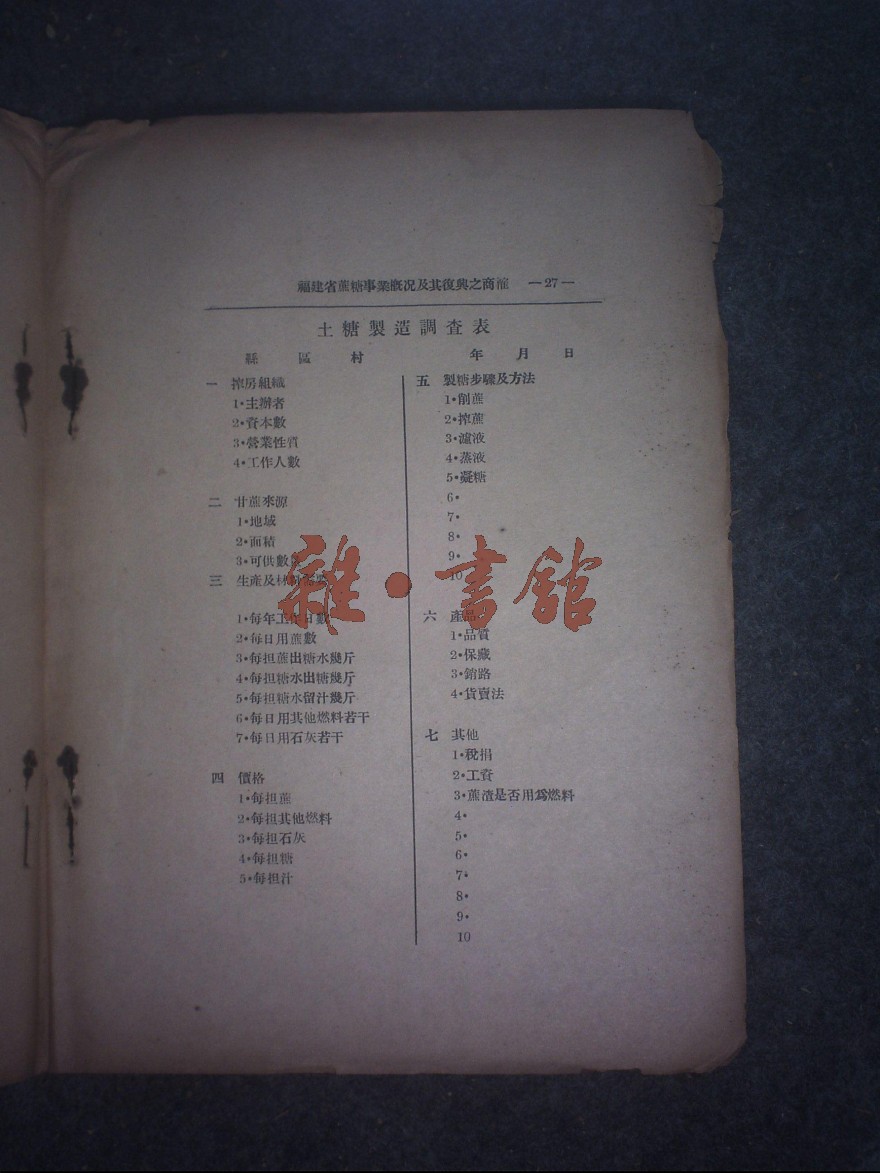 福建省蔗糖事業概况及其復興之商榷 —27—
土糖製造調查表
縣 區 村 年 月 日
一 搾房組織
1·主辦者
2·資本數
3·營業性質
4·工作人數
二 甘蔗來源
1·地域
2·面積
3·可供數
三 生產及材料
1·每年工作日數
2·每日用蔗數
3·每担蔗出糖水幾斤
4·每担糖水出糖幾斤
5·每担糖水留汁幾斤
6·每日用其他燃料若干
7·每日用石灰若干
四 價格
1·每担蔗
2·每担其他燃料
3·每担石灰
4·每担糖
5·每担汁
五 製糖步驟及方法
1·削蔗
2·搾蔗
3·濾液
4·蒸液
5·凝糖
6·
7·
8·
9·
10
六 產品
1·品質
2·保藏
3·銷路
4·貨賣法
七 其他
1·稅捐
2·工資
3·蔗渣是否用爲燃料
4·
5·
6·
7·
8·
9·
10
雜·書館